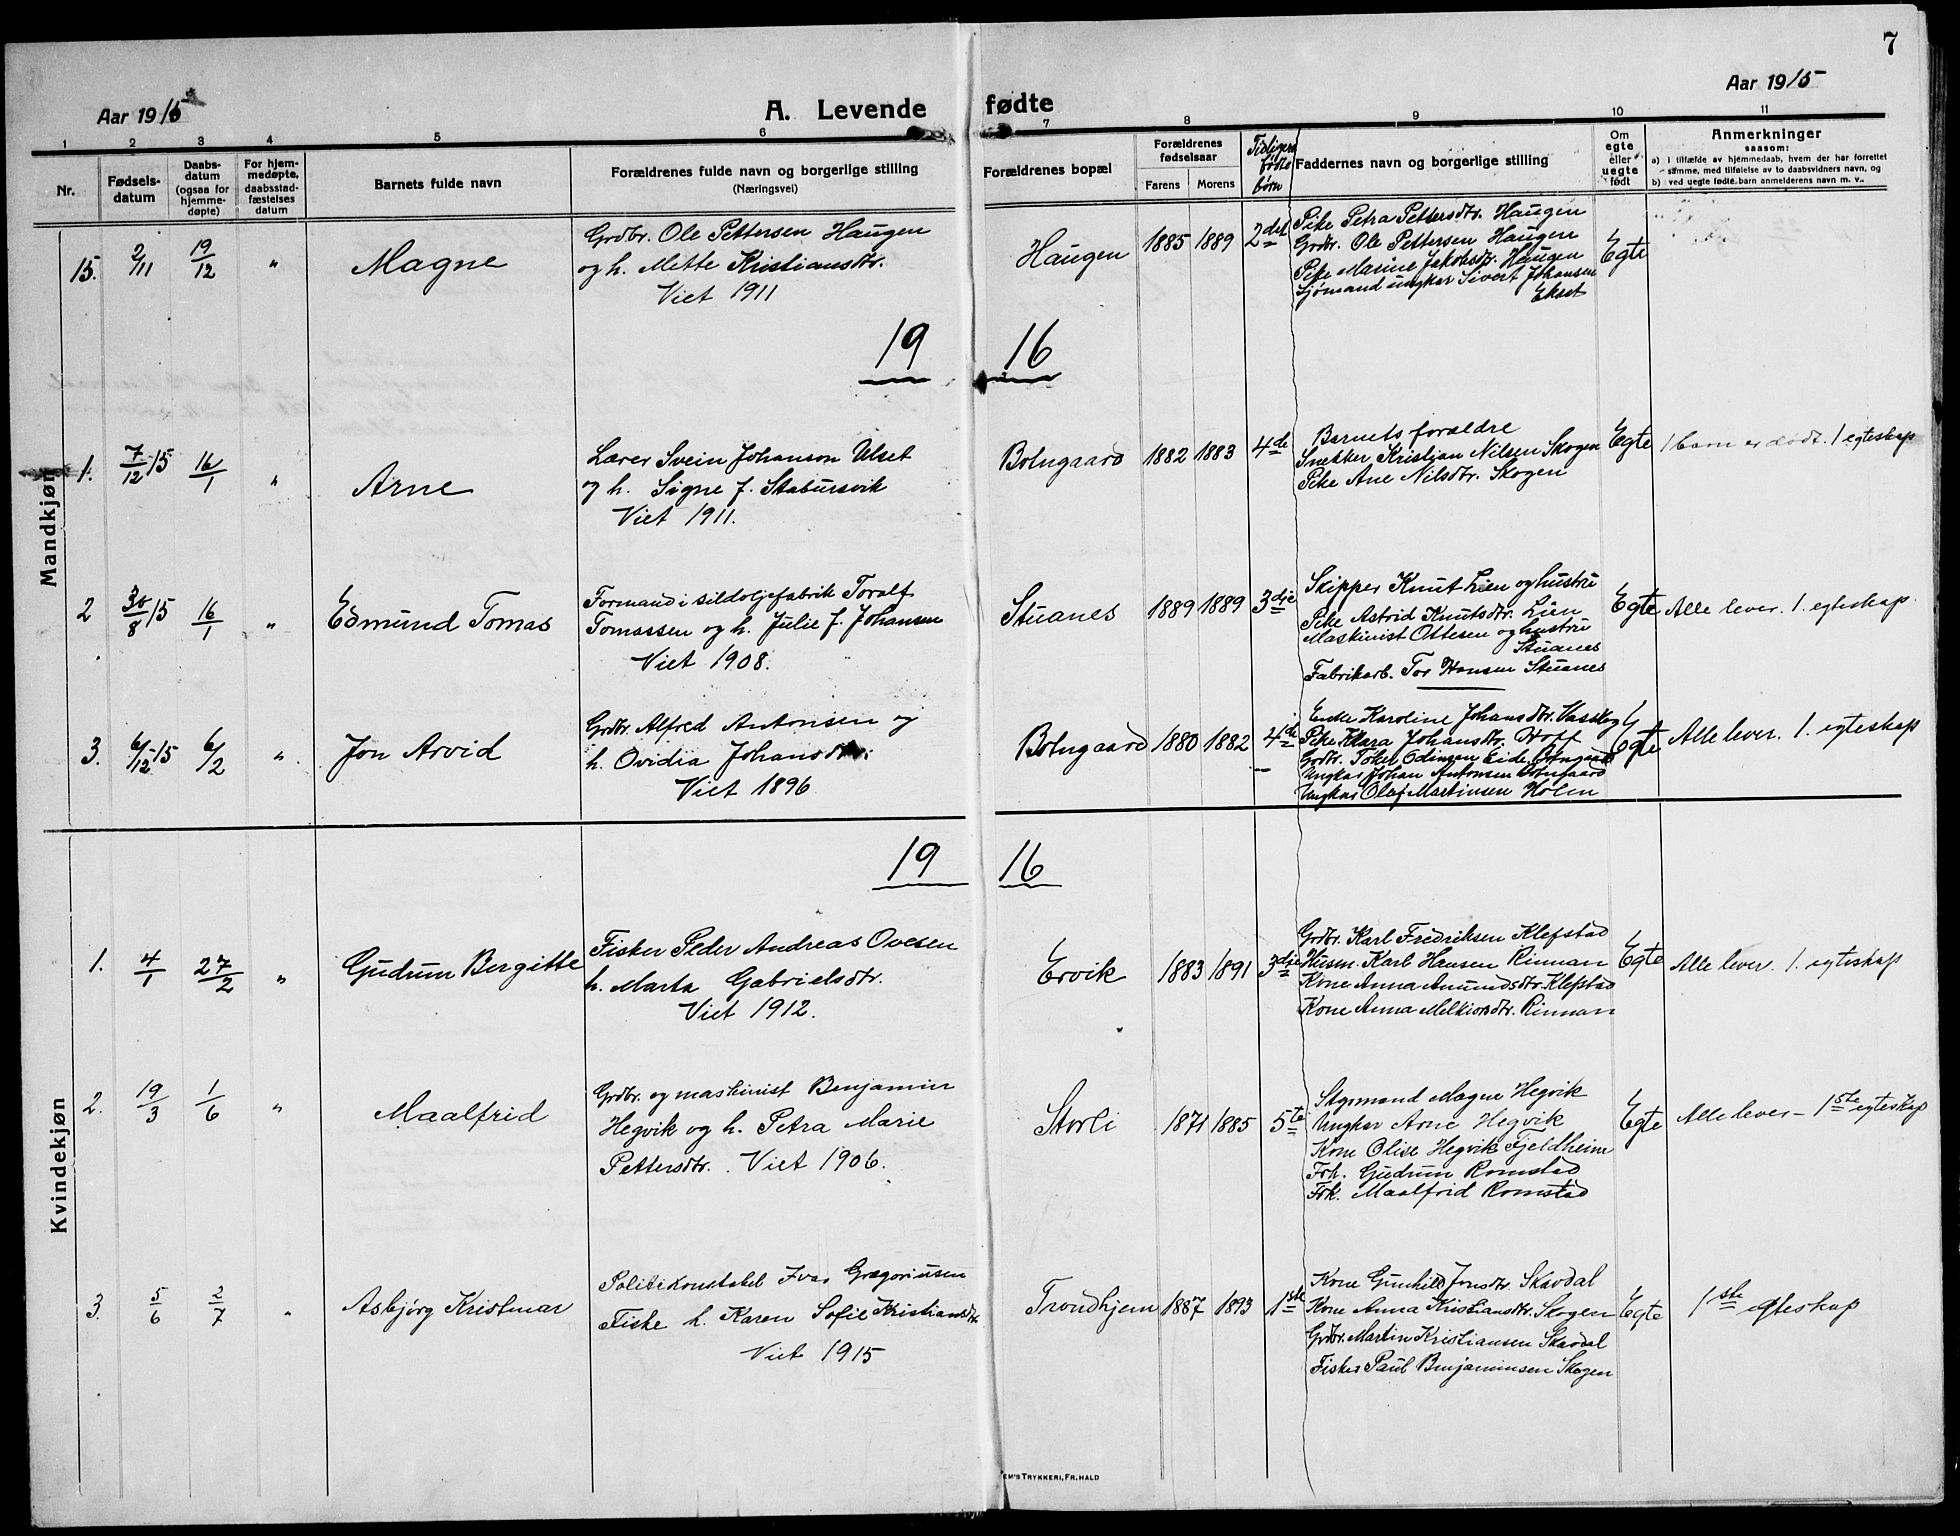 7
Aar 1915
A. Levende fødte
Aar 1915
1 2 3 4 5 6 7 8 9 10 11
Nr.
Fødsels-
datum
Daabs-
datum
(ogsaa for
hjemme-
døpte)
For hjem-
medøpte,
daabsstad-
fæstelses
datum
Barnets fulde navn
Forældrenes fulde navn og borgerlige stilling
(Næringsvei)
Forældrenes bopæl
Forældrenes
fødselsaar
Farens Morens
Tidligere
fødte
børn
Faddernes navn og borgerlige stilling
Om
egte
eller
uegte
født
Anmerkninger
saasom:
a) i tilfælde av hjemmedaab, hvem der har forrettet
samme, med tilføielse av to daabsvidners navn, og
b) ved uegte fødte barn anmelderens navn m. v..
Mandkjøn
15. 2/11 19/12 " Magne
Grdbr. Ole Pettersen Haugen
og h. Mette Kristiansdtr.
Viet 1911
Haugen 1885 1889 2det
Pike Petra Pettersdtr. Haugen
Grdbr. Ole Pettersen Haugen
Pike Marine Jakobsdtr. Haugen
Sjømand ungkar Sivert Johansen
Ekset
Egte
19 16
1. 7/12 15 16/1 " Arne
Lærer Svein Johanson Ulset
og h. Signe J. Stabursvik
Viet 1911.
Botngaard 1882 1883 4de
Barnets forældre
Snekker Kristian Nilsen Skogen
Pike Ane Nilsdtr. Skogen
Egte 1 barn er dødt. 1 egteskap
2 30/8 15 16/1 " Edmund Tomas
Formand i sildoljefabrik Toralf
Tomassen og h. Julie J. Johansen
Viet 1908.
Stuanes 1889 1889 3dje
Skipper Knut Lien og hustru
Pike Astrid Knutsdtr. Lien
Maskinist Ottesen og hustru
Stuanes
Fabrikarb. Tor Hansen Stuanes
Egte Alle lever. 1. egteskap.
3. 6/12-15 6/2 " Jon Arvid
Grdbr. Alfred Antonsen og
h. Ovidia Johansdtr.
Viet 1896
Botngaard 1880 1882 4de
Enke Karoline Johansdtr. Vasslog
Pike Klara Johansdtr. Hoff
Grdbr. Toker Odinsen Eide, Botngaard
Ungkar Johan Antonsen Botngaard
Ungkar Olaf Martinsen Holm
Egte Alle lever. 1. egteskap
Kvindekjøn
19 16
1. 4/1 27/2 " Gudrun Bergitte
Fisker Peder Andreas Ovesen
h. Marta Gabrielsdtr.
Viet 1912.
Ervik 1883 1891 3dje
Grdbr. Karl Fredriksen Klefstad
Husm. Karl Hansen Rinnan
Kone Anna Amundsdtr. Klefstad
Kone Anna Melkiorsdtr. Rinnan
Egte Alle lever. 1. egteskap
2. 19/3 1/6 " Maalfrid
Grdbr. og maskinist Benjamin
Hegvik og h. Petra Marie
Pettersdtr. Viet 1906.
Storli 1871 1885 5te
Styrmand Magne Hegvik
Ungkar Arne Hegvik
Kone Olise Hegvik Fjeldheim
Frk. Gudrun Romstad
Frk. Maalfrid Romstad
Egte Alle lever - 1ste egteskap
3. 5/6 2/7 " Asbjørg Kristmar
Politikonstabel Ivar Gregoriusen
Fiske h. Karen Sofie Kristiansdtr.
Viet 1915
Trondhjem 1887 1893 1ste
Kone Gunhild Jonsdtr. Skavdal
Kone Anna Kristiansdtr. Skogen
Grdbr. Martin Kristiansen Skavdal
Fisker Paul Benjaminsen Skogen
Egte 1ste egteskap
EM'S TRYKKERI, FR. HALD